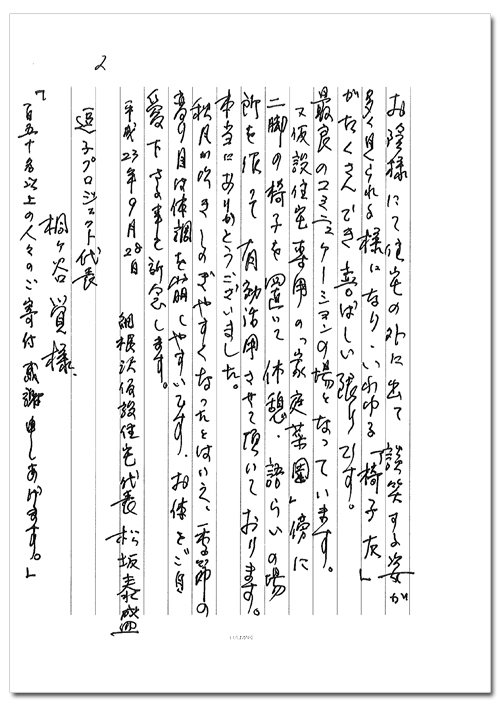 2
お陰様にて住宅の外に出て談笑する姿が
多く見られる様になり、いわゆる「椅子友」
がたくさんでき喜ばしい限りです。
最良のコミュニケーションの場となっています。
又仮設住宅専用の「家庭菜園」傍に
二脚の椅子を置いて休憩・語らいの場
所を作って有効活用させて頂いております。
本当にありがとうございました。
秋風が吹きしのぎやすくなったとはいえ、季節の
変り目は体調を崩しやすいです。お体をご自
愛下さる事を祈念します。
平成23年9月28日 細根沢仮設住宅代表 松坂泰盛
逗子プロジェクト代表
桐ヶ谷覚様
「百五十名以上の人々のご寄付感謝申しあげます。」